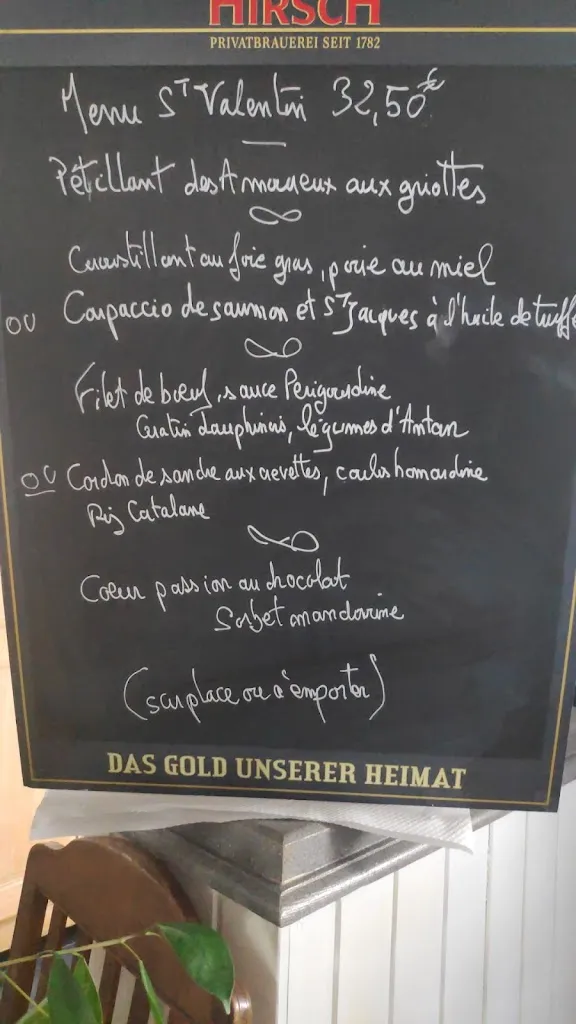 HIRSCH
PRIVATBRAUEREI SEIT 1782
Menu St Valentin 32,50€
Pétillant des Amoureux aux griottes
Croustillant au foie gras, poire au miel
ou Carpaccio de saumon et St Jacques à l'huile de truffe
Filet de bœuf, sauce Perigourdine
Gratin Dauphinois, légumes d'Antan
ou Cordon de sandre aux crevettes, coulis homardine
Riz Catalane
Coeur passion au chocolat
Sorbet mandarine
(sur place ou à emporter)
DAS GOLD UNSERER HEIMAT